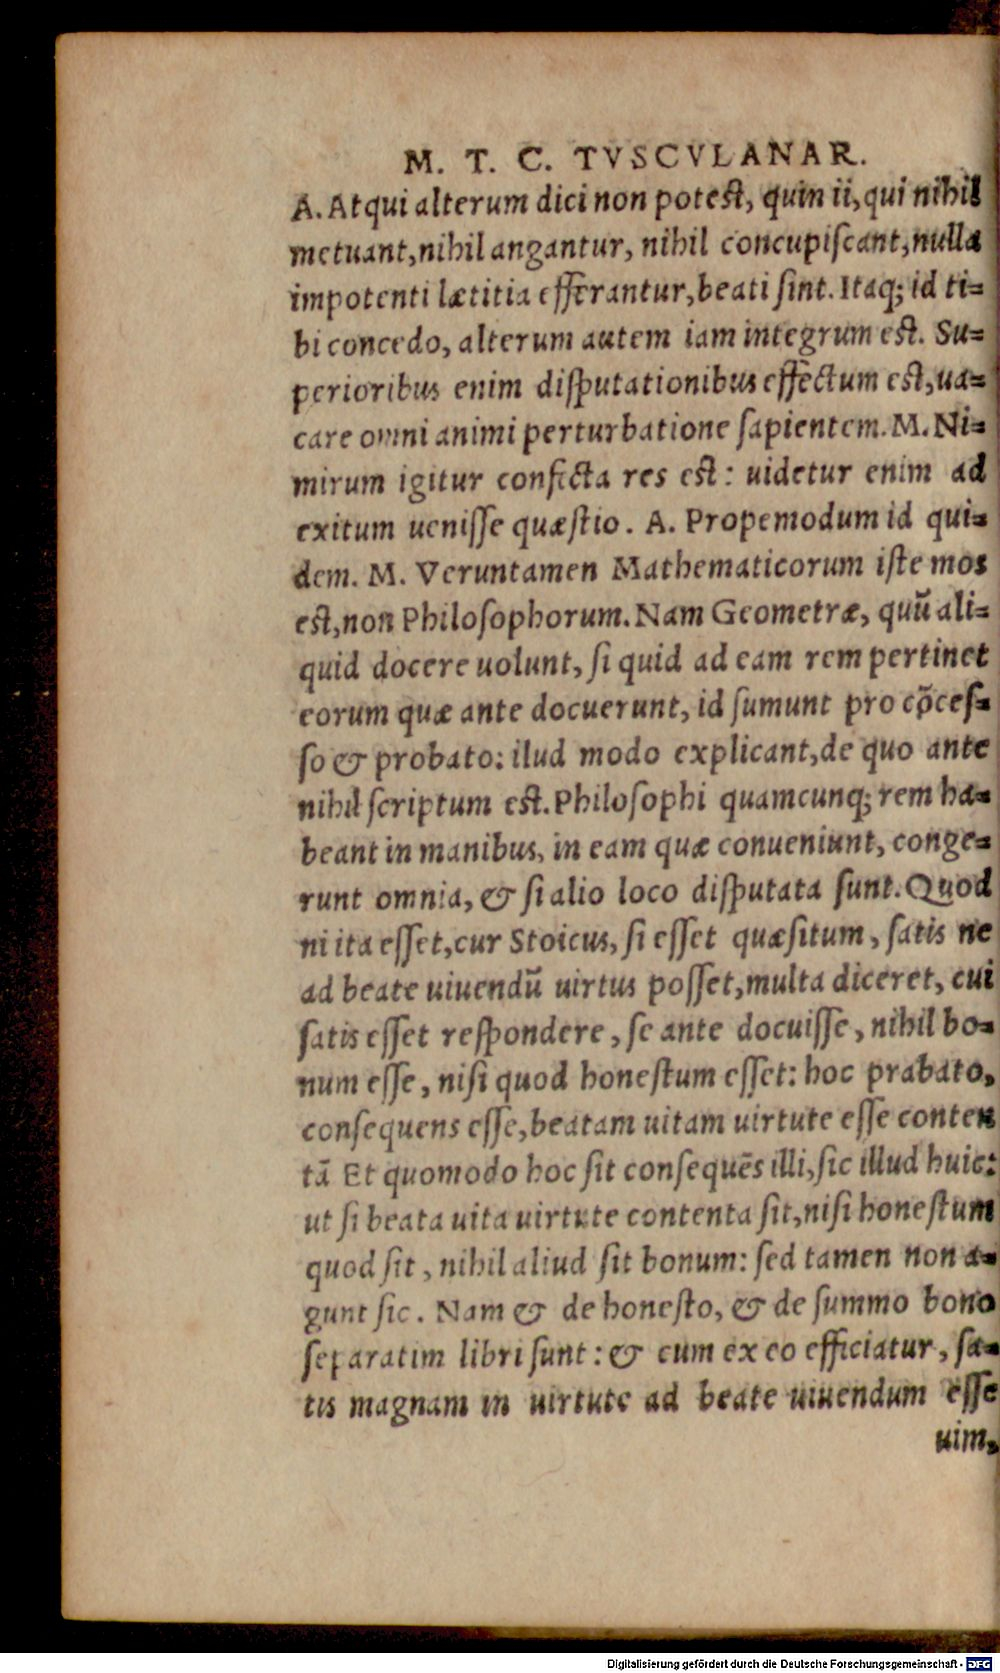 M. T. C. TVSCVLANAR.
A. Atqui alterum dici non potest, quin ii, qui nihil
metuant, nihil angantur, nihil concupiſcant, nulla
impotenti lætitia efferantur, beati ſint. Itaq; id ti=
bi concedo, alterum autem iam integrum est. Su=
perioribus enim diſputationibus effectum est, ua=
care omni animi perturbatione ſapientem. M. Ni=
mirum igitur confecta res est: uidetur enim ad
exitum ueniſſe quæſtio. A. Propemodum id qui=
dem. M. Veruntamen Mathematicorum iſte mos
est, non Philoſophorum. Nam Geometræ, quū ali=
quid docere uolunt, ſi quid ad eam rem pertinet
eorum quæ ante docuerunt, id ſumunt pro cōceſ=
ſo & probato: ilud modo explicant, de quo ante
nihil ſcriptum est. Philoſophi quamcunq; rem ha=
beant in manibus, in eam quæ conueniunt, conge=
runt omnia, & ſi alio loco diſputata ſunt. Quod
ni ita eſſet, cur Stoicus, ſi eſſet quæſitum, ſatis ne
ad beate uiuendū uirtus poſſet, multa diceret, cui
ſatis eſſet reſpondere, ſe ante docuiſſe, nihil bo=
num eſſe, niſi quod honeſtum eſſet: hoc prabato,
conſequens eſſe, beatam uitam uirtute eſſe conten
tā Et quomodo hoc ſit conſequēs illi, ſic illud huic:
ut ſi beata uita uirtute contenta ſit, niſi honeſtum
quod ſit, nihil aliud ſit bonum: ſed tamen non a=
gunt ſic. Nam & de honeſto, & de ſummo bono
ſeparatim libri ſunt: & cum ex eo efficiatur, ſa=
tis magnam in uirtute ad beate uiuendum eſſe
uim,
Digitalisierung gefördert durch die Deutsche Forschungsgemeinschaft - DFG